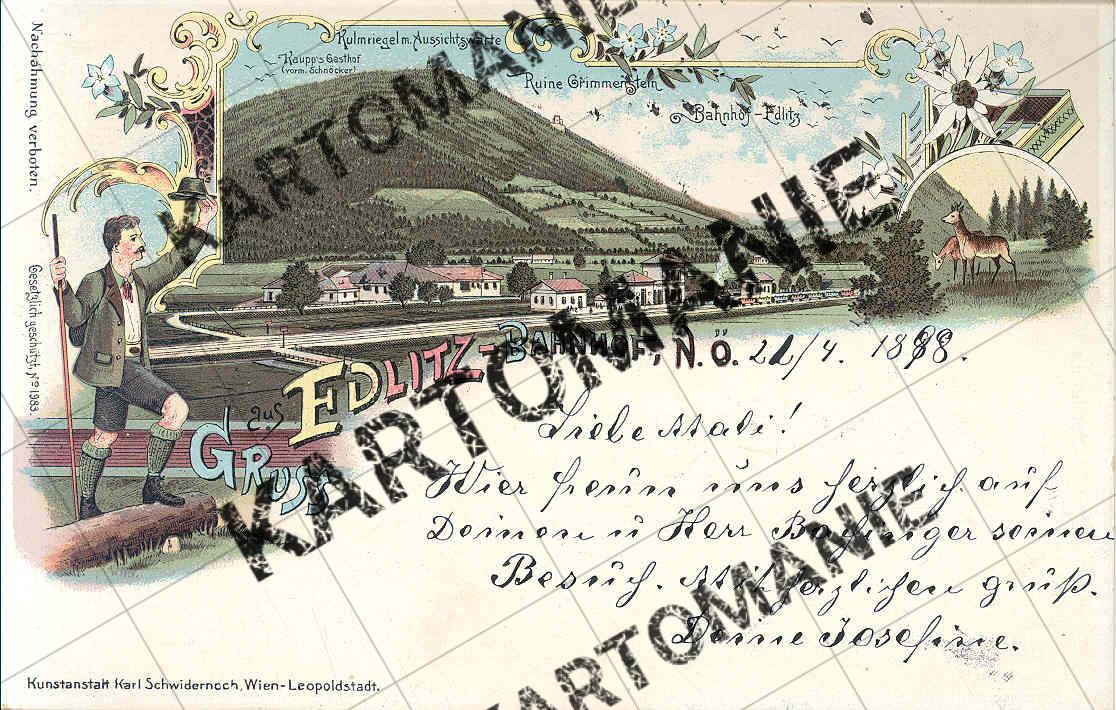 Nachahmung verboten.
Gesetzlich geschützt, No 1983.
Kulmriegel m. Aussichtswarte
Kaupp's Gasthof
(vorm. Schnöcker)
Ruine Grimmenstein
Bahnhof-Edlitz
GRUSS aus EDLITZ-BAHNHOF, N.Ö. /4. 1898.
Liebe Mali!
Wier freun uns herzlich auf
Deinen u Herr seinen
Besuch. Mit herzlichen gruß.
Deine Josefine.
Kunstanstalt Karl Schwidernoch, Wien-Leopoldstadt.
KARTOMANIE
KARTOMANIE
KARTOMANIE